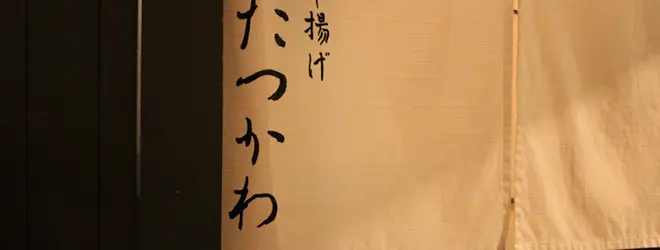 揚げ
たつかわ